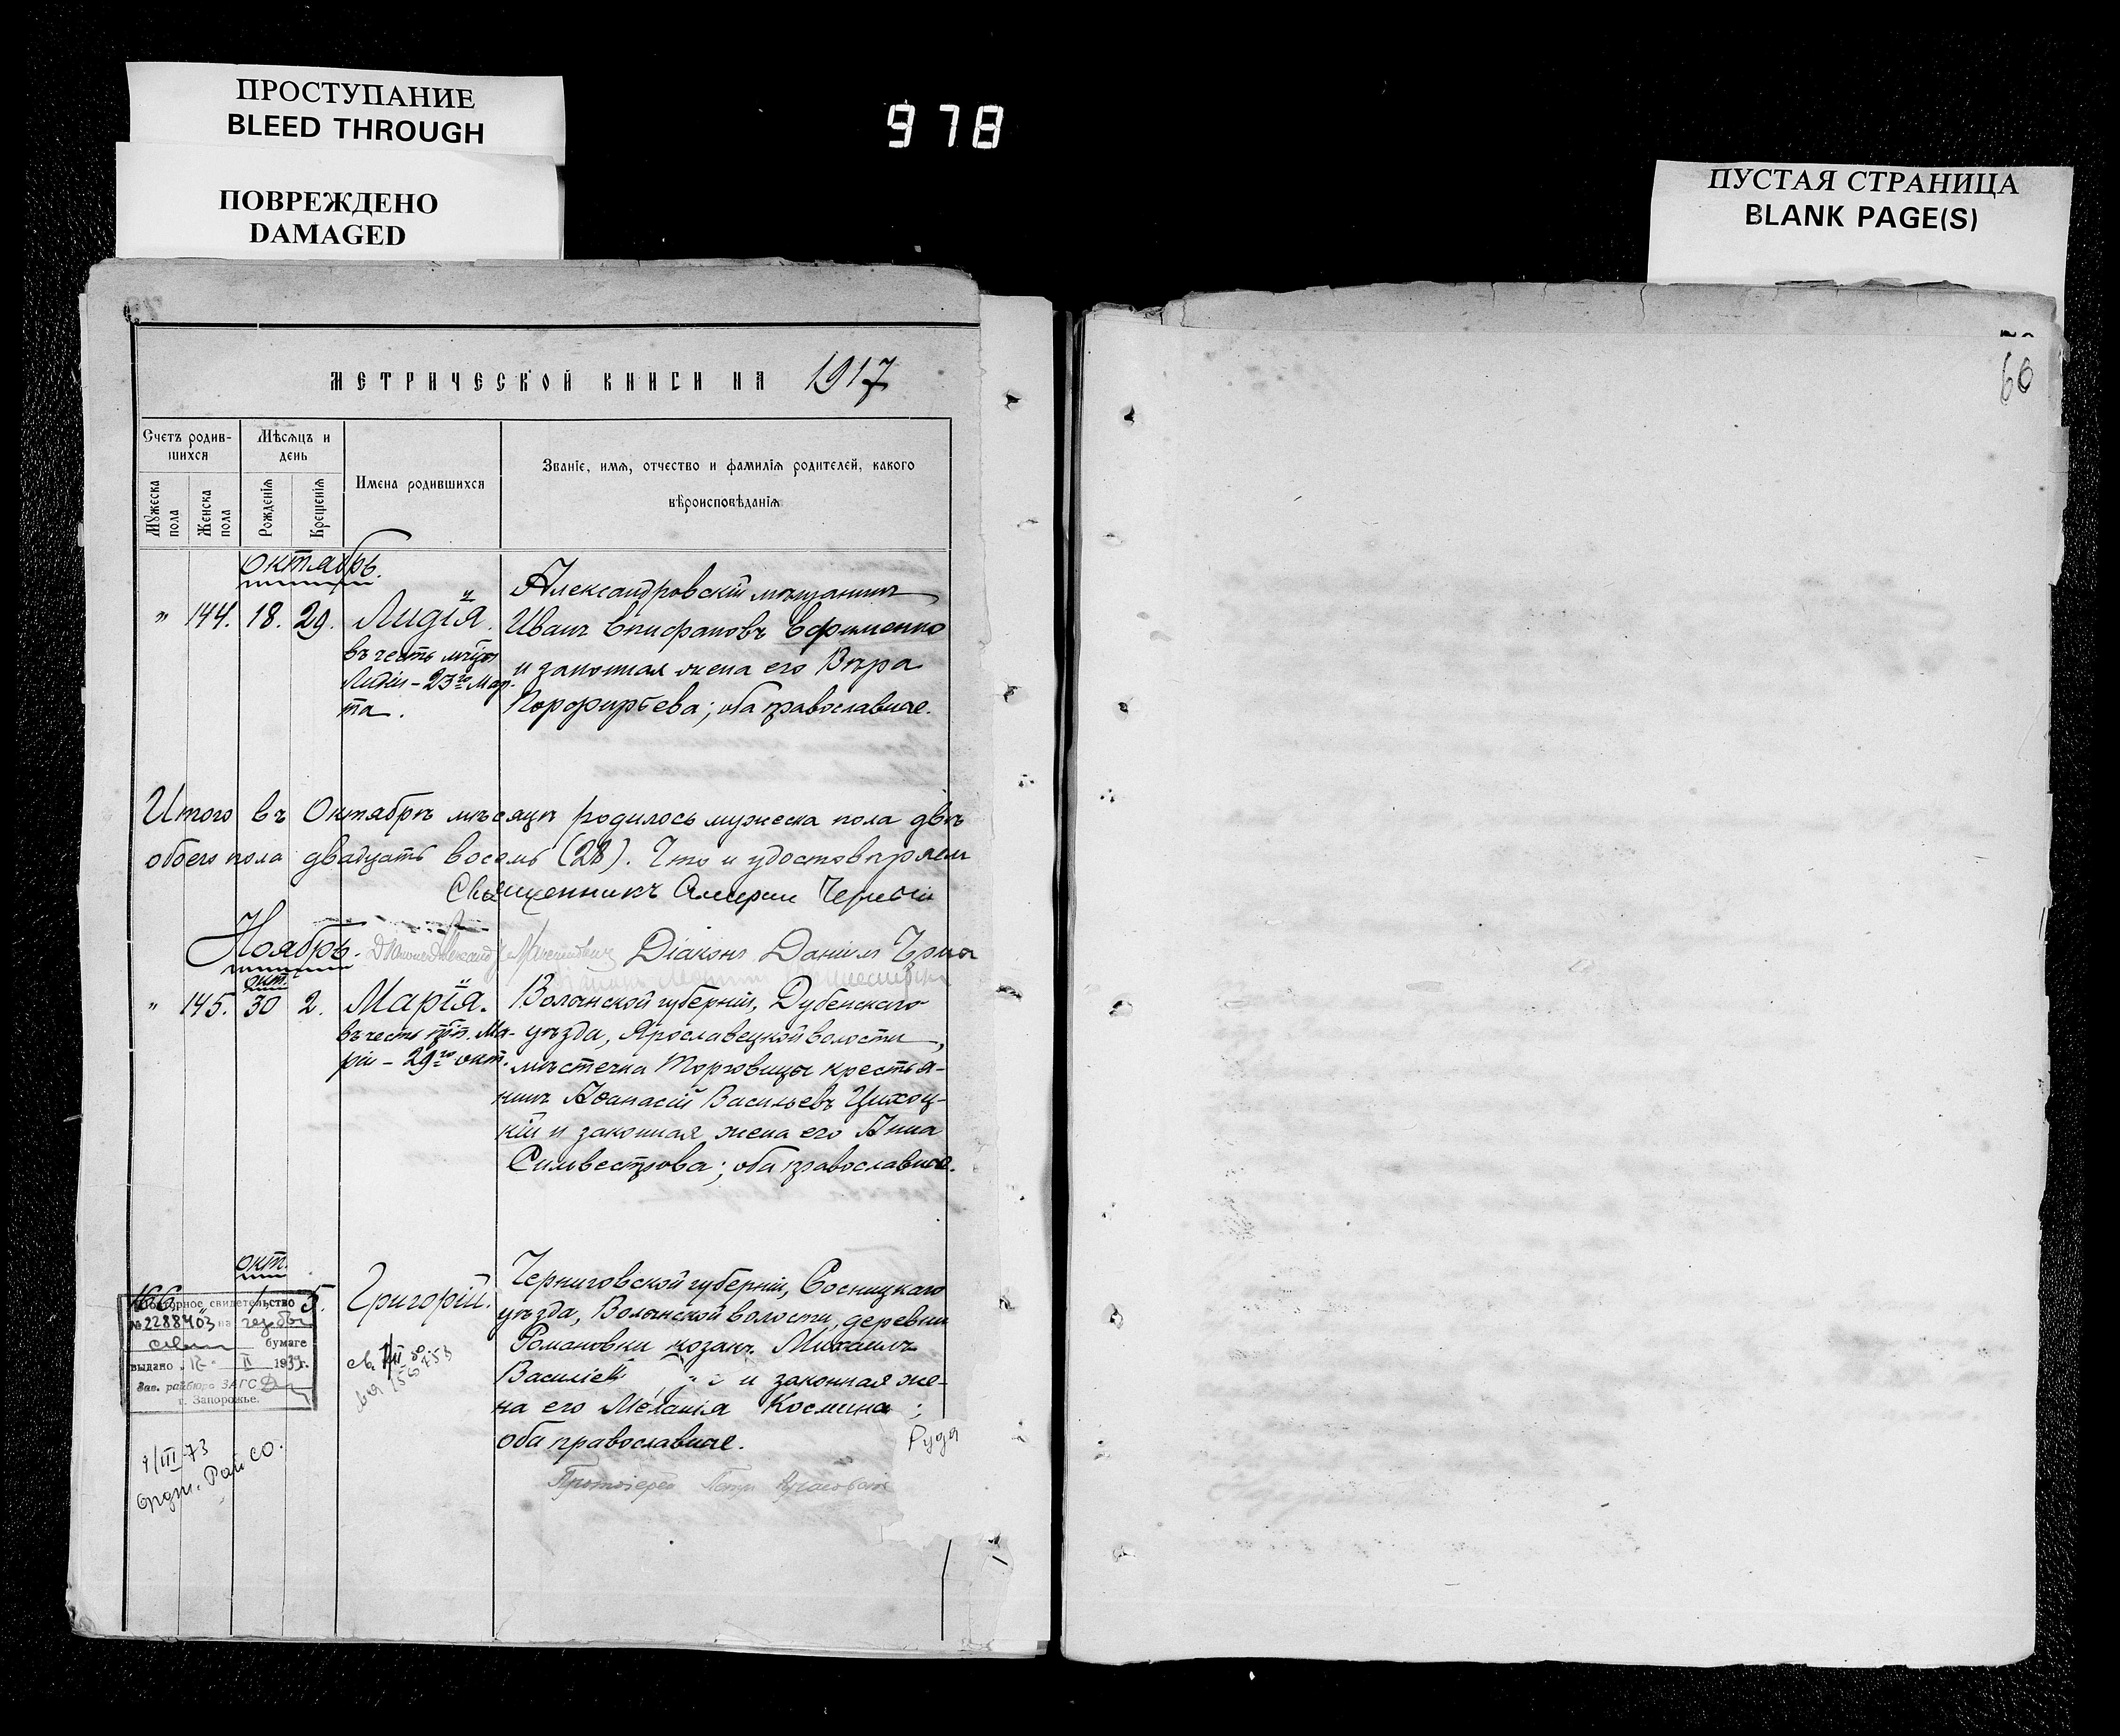 ПРОСТУПАНИЕ
BLEED THROUGH
ПОВРЕЖДЕНО
DAMAGED
978
ПУСТАЯ СТРАНИЦА
BLANK PAGE(S)
66
МЕТРИЧЕСКОЙ КНИГИ НА 1917
Счетъ родив-
шихся
Мѣсяцъ и
день
Имена родившихся
Званіе, имя, отчество и фамилія родителей, какого
вѣроисповѣданія
Мужеска
пола
Женска
пола
Рожденія
Крещенія
Октябрь.
" 144. 18. 29. Лидія.
въ честь мч҃цы
Лидіи – 23го Мар-
та.
Александровскій мѣщанинъ
Иванъ Епифановъ Ефименко
и законная жена его Вѣра
Порфирьева; оба православные.
Итого въ Октябрѣ мѣсяцѣ родилось мужеска пола
обоего пола двадцать восемь (28). Что и удостовѣряемъ
Священникъ
Ноябрь.
Діаконъ Даніилъ
окт.
" 145. 30 2. Марія.
въ честь Ма-
ріи – 29го окт.
Волынской губерніи, Дубенскаго
уѣзда, Ярославецкой волости,
мѣстечка Торговицы крестья-
нинъ Аѳанасій Васильевъ Цихоц-
кій и законная жена его Анна
Силвестрова; оба православные.
окт.
166 " 1. 5. Григорій.
Черниговской губерніи, Сосницкаго
уѣзда, Волынской волости, деревни
Романовки козакъ Михаилъ
Василіевъ и законная же-
на его Меланія Космина;
оба православные.
Руда
Повторное свидетельство
№ 2288403 на
бумаге
выдано II 193 г.
Зав. райбюро ЗАГС
г. Запорожье.
9/III-73
Ордж. РайСО.
Протоіерей Петръ